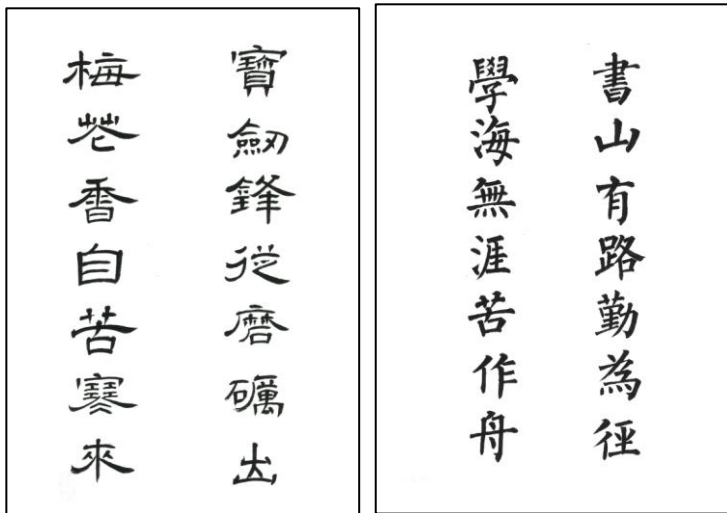 寶劔鋒從磨礪出
梅花香自苦寒來
書山有路勤為徑
學海無涯苦作舟